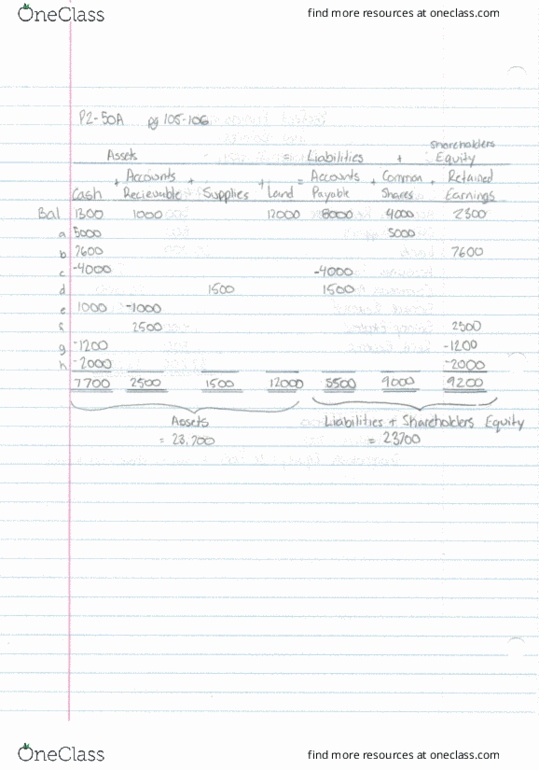 OneClass find more resources at oneclass.com
P2-50A pg 105-106
Shareholders
Assets = Liabilities + Equity
+ Accounts + + = Accounts + Common + Retained
Cash Recievable Supplies Land Payable Shares Earnings
Bal 1300 1000 12000 8000 4000 2300
a 5000 5000
b 7600 7600
c -4000 -4000
d 1500 1500
e 1000 -1000
f 2500 2500
g -1200 -1200
h -2000 -2000
7700 2500 1500 12000 5500 9000 9200
Assets Liabilities + Shareholders Equity
= 23,700 = 23700
OneClass find more resources at oneclass.com